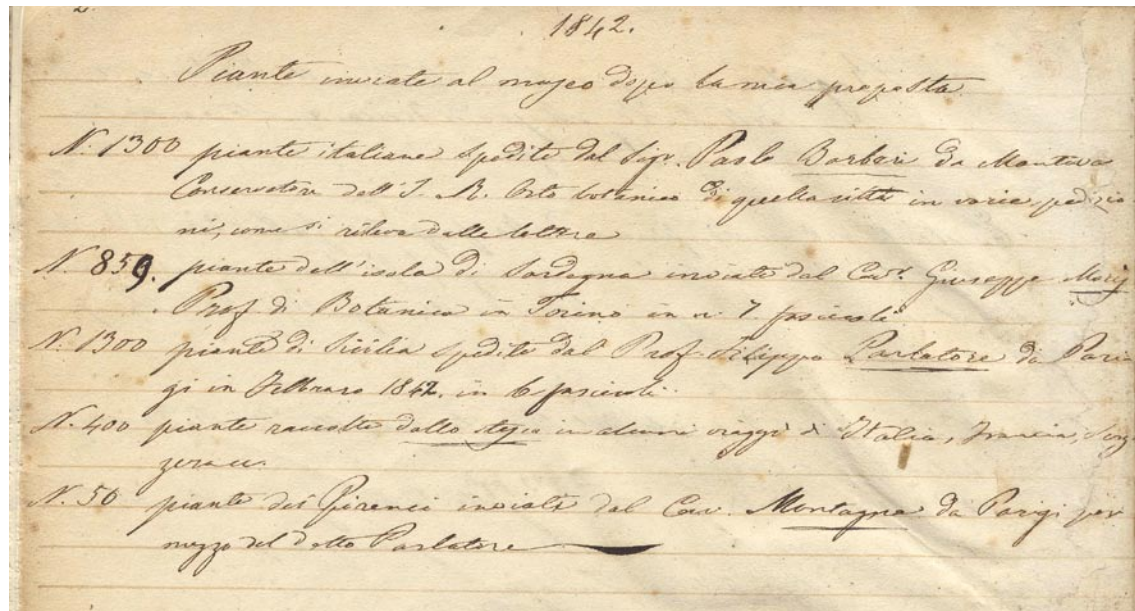 2.
1842.
Piante inviate al museo dopo la mia proposta
N. 1300 piante italiane spedite dal Sigr. Paolo Barbieri da Mantova
Conservatore dell'I. R. Orto botanico di quella città in varie spedizio
ni, come si rileva dalle lettere
N. 859. piante dell'isola di Sardegna inviate dal Cavr. Giuseppe Moris
Prof. di Botanica in Torino in n. 7 fascicoli
N. 1300 piante di Sicilia spedite dal Prof. Filippo Parlatore da Pari
gi in Febbraro 1842. in 6 fascicoli
N. 400 piante raccolte dallo stesso in alcuni viaggi di Italia, Francia, Sviz
zera ec.
N. 50 piante dei Pirenei inviate dal Cav. Montagne da Parigi per
mezzo del detto Parlatore